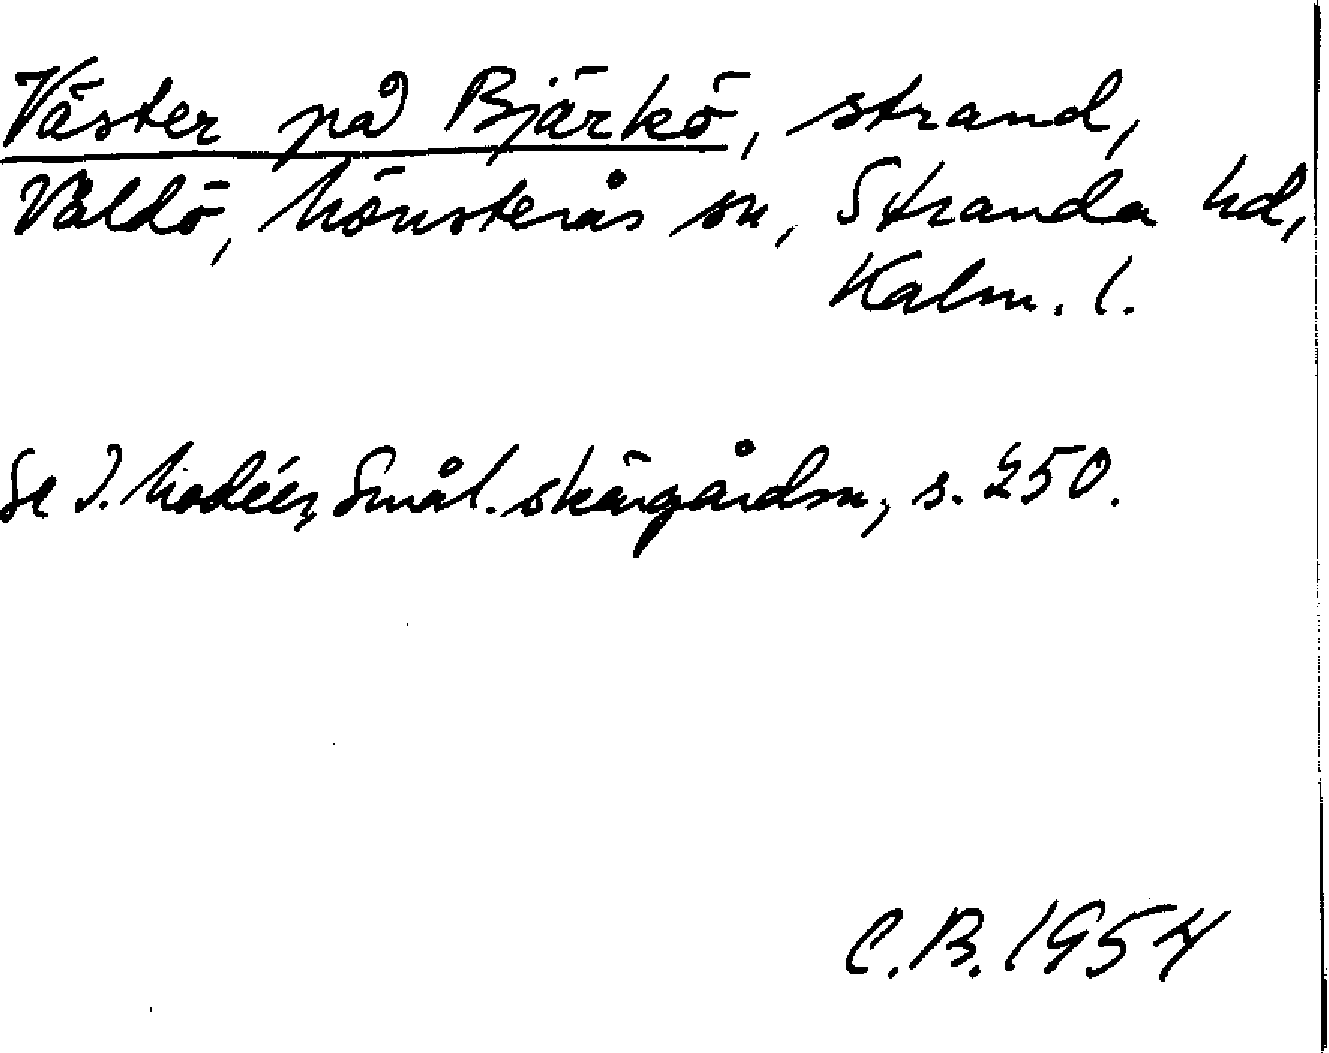 Väster på Bjärkö, strand,
Valdö, Mönsterås sn, Stranda hd,
Kalm. l.
Se I. Modéer, Smål. skärgårdsn, s. 250.
C.B. 1954